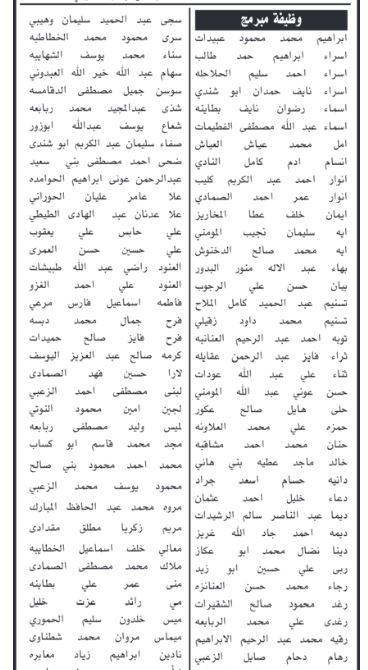 وظيفة مبرمج
ابراهيم محمد محمود عبيدات
اسراء ابراهيم حمد طالب
اسراء احمد سليم الحلاحله
اسراء نايف حمدان ابو شندي
اسماء رضوان نايف بطاينه
اسماء عبد الله مصطفى القطيمات
امل محمد عياش العياش
انسام ادم كامل النادي
انوار احمد عبد الكريم كليب
انوار عمر احمد الصمادي
ايمان خلف عطا المخاريز
ايه سليمان نجيب المومني
ايه محمد صالح الدخنوش
بهاء عبد الاله منور البدور
بيان حسن علي الرجوب
تسنيم عبد الحميد كامل الملاح
تسنيم محمد داود زقيلي
توبه احمد عبد الرحيم العنانبه
ثراء فايز عبد الرحمن عقايله
ثناء علي عبد الله عودات
حسن عوني عبد الله المومني
حلى هايل صالح عكور
حمزه علي محمد العلاونه
حنان محمد احمد مشاقبه
خالد ماجد عطيه بني هاني
دانيه حسام اسعد جراد
دعاء خليل احمد عثمان
ديما عبد الناصر سالم الرشيدات
ديمه احمد جاد الله غريز
دينا نضال محمد ابو عكاز
ربى علي حسين ابو زيد
رجاء محمد حسن العنانزه
رغد محمود صالح الشقيرات
رغدى علي محمد الربابعه
رقيه محمد عبد الرحيم الابراهيم
رهام دحام صايل الزعبي
سجى عبد الحميد سليمان وهيبي
سرى محمود محمد الخطاطبه
سناء محمد يوسف الشهابيه
سهام عبد الله خير الله العبدوني
سوسن جميل مصطفى الدقامسه
شذى عبدالمجيد محمد ربابعه
شعاع يوسف عبدالله ابوزور
صفاء سليمان عبد الكريم ابو شندى
ضحى احمد مصطفى بني سعيد
عبدالرحمن عونى ابراهيم الحوامده
علا عامر عليان الحوراني
علا عدنان عبد الهادى الطيطي
علي حابس علي يعقوب
علي حسين حسن العمرى
العنود راضي عبد الله طبيشات
العنود علي احمد الغزو
فاطمه اسماعيل فارس مرعي
فرح جمال محمد دبسه
فرح فايز صالح حميدات
كرمه صالح عبد العزيز اليوسف
لارا حسين فهد الصمادى
لبنى مصطفى احمد الزعبي
لجين امين محمود النوتي
لميس وليد مصطفى ربابعه
مجد محمد قاسم ابو كساب
محمد احمد محمود بني صالح
محمود يوسف محمد الزعبي
مروه محمد عبد الحافظ المبارك
مريم زكريا مطلق مقدادى
معالي خلف اسماعيل الخطايبه
ملاك محمد مصطفى الصمادى
منى عمر علي بطاينه
مي رائد عزت خليل
ميس خلدون سليم الحموري
ميماس مروان محمد شطناوى
نادين ابراهيم زياد معابره